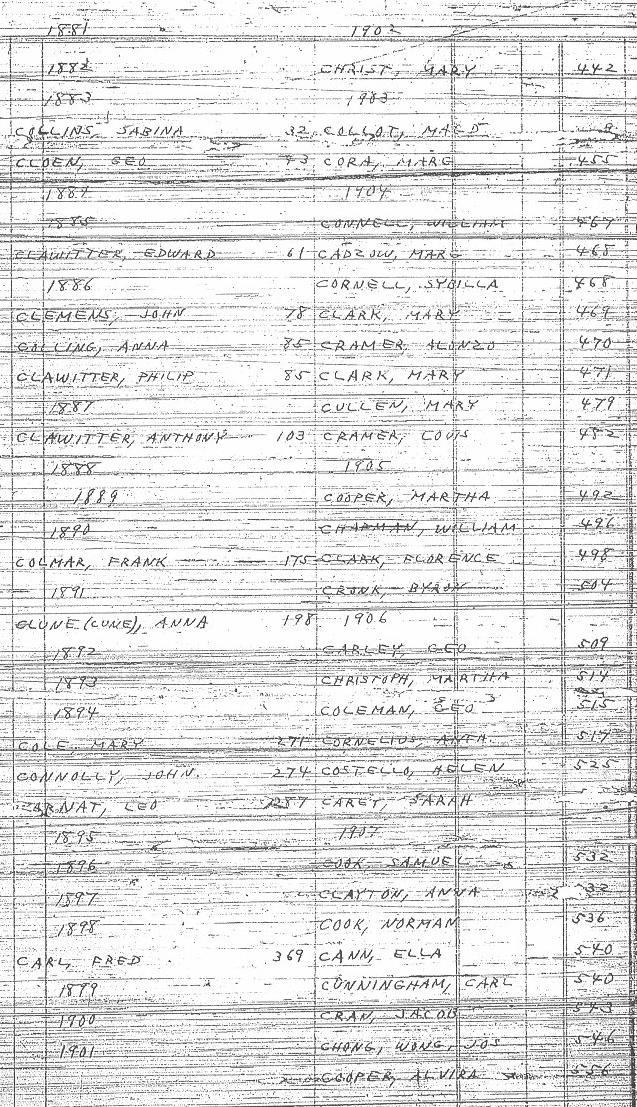 1881 1902
1882 CHRIST, MARY 442
1883 1903
COLLINS, SABINA 32 COLLOT, MALD
CLOEN, GEO 43 CORA, MARG 455
1884 1904
1885 CONNELL, WILLIAM 467
CLAWITTER, EDWARD 61 CADZOW, MARG 468
1886 CORNELL, SYBILLA 468
CLEMENS, JOHN 78 CLARK, MARY 469
COLLING, ANNA 85 CRAMER, ALONZO 470
CLAWITTER, PHILIP 85 CLARK, MARY 471
1887 CULLEN, MARY 479
CLAWITTER, ANTHONY 103 CRAMER, LOUIS 482
1888 1905
1889 COOPER, MARTHA 492
1890 CHAPMAN, WILLIAM 496
COLMAR, FRANK 175 CLARK, FLORENCE 498
1891 CRONK, BYRON 504
CLUNE (CUNE), ANNA 198 1906
1892 CARLEY, GEO 509
1893 CHRISTOPH, MARTHA 514
1894 COLEMAN, GEO 515
COLE, MARY 271 CORNELIUS, ANTH. 517
CONNOLLY, JOHN. 274 COSTELLO, HELEN 525
LEO 287 CAREY, SARAH
1895 1907
1896 COOK, SAMUEL 532
1897 CLAYTON, ANNA
1898 COOK, NORMAN 536
CARL, FRED 369 CANN, ELLA 540
1899 CUNNINGHAM, CARL 540
1900 CRAN, JACOB 543
1901 CHONG, WONG, JOS 546
COOPER, ALVIRA 556